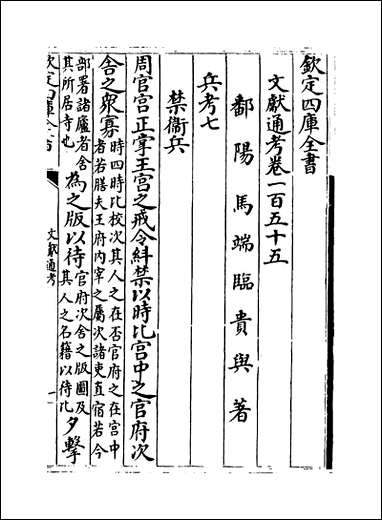 欽定四庫全書
文獻通考卷一百五十五
鄱陽馬端臨貴與著
兵考七
禁衞兵
周官宮正掌王宮之戒令糾禁以時比宮中之官府次
舍之眾寡
時四時比校次其人之在否官府之在宮中
者若膳夫王府内宰之屬次諸吏直宿若今
部署諸廬者舍
其所居寺也
為之版以待
官府次舍之版圖及
其人之名籍以待比
夕擊
文獻通考
一